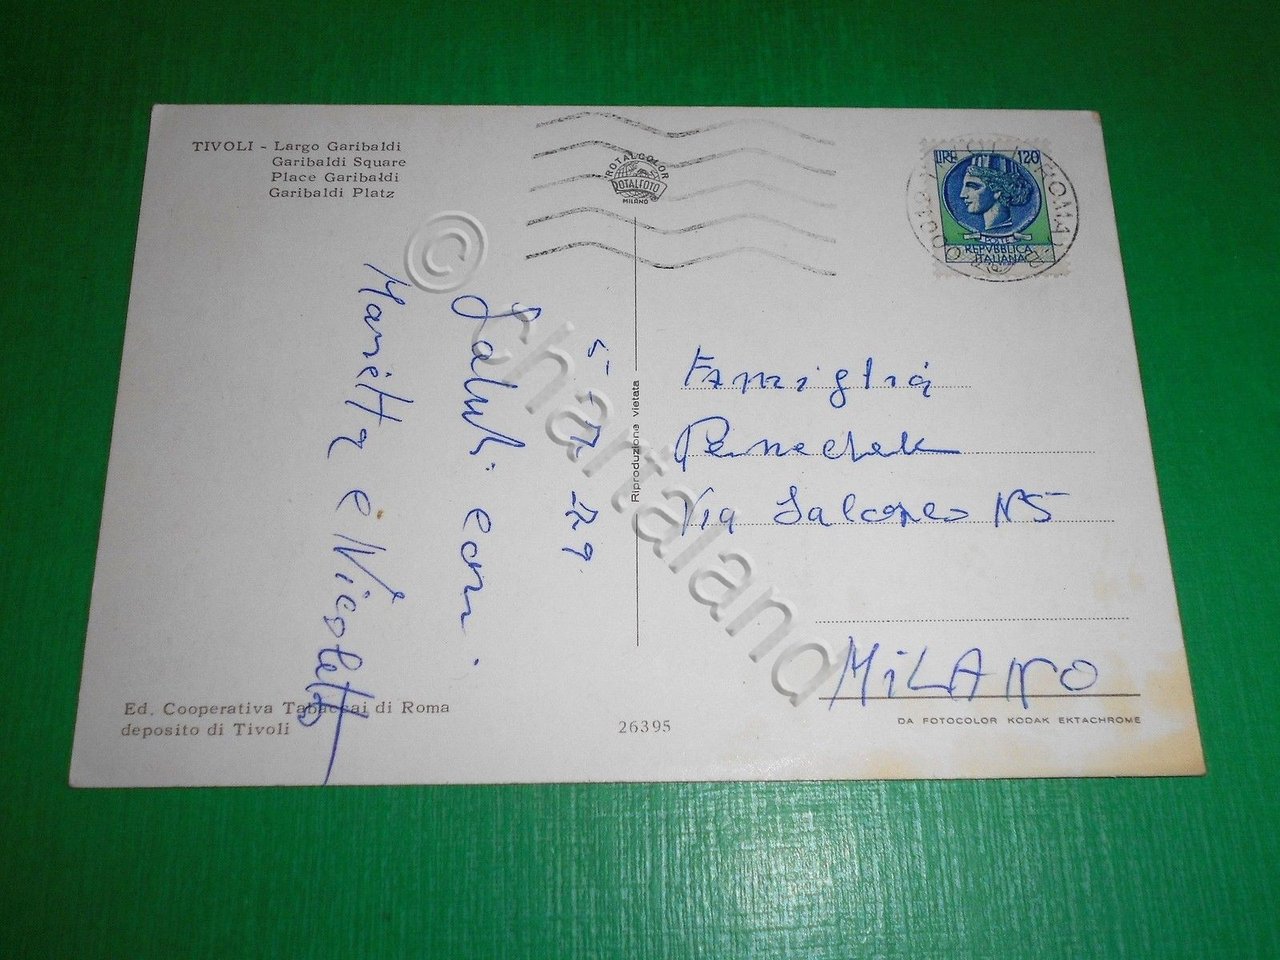 TIVOLI - Largo Garibaldi
Garibaldi Square
Place Garibaldi
Garibaldi Platz
ROTALCOLOR
ROTALFOTO
MILANO
LIRE 120
POSTE
REPVBBLICA
ITALIANA
00019 TIVOLI (ROMA)
Saluti cari
Marietta e Nicoletta
Riproduzione vietata
Famiglia
Via Falcone N5
MiLANO
Ed. Cooperativa Tabaccai di Roma
deposito di Tivoli
26395
DA FOTOCOLOR KODAK EKTACHROME
© chartaland